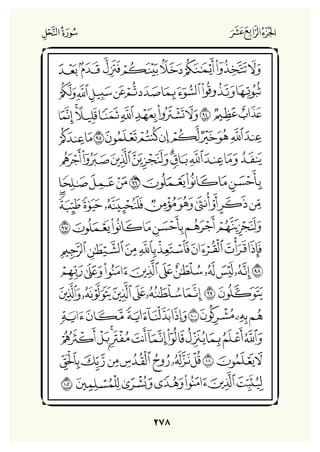 الجُزْءُ الرَّابِعَ عَشَرَ سُورَةُ النَّحْلِ
وَلَا تَتَّخِذُوٓا۟ أَيْمَٰنَكُمْ دَخَلًۢا بَيْنَكُمْ فَتَزِلَّ قَدَمٌۢ بَعْدَ
ثُبُوتِهَا وَتَذُوقُوا۟ ٱلسُّوٓءَ بِمَا صَدَدتُّمْ عَن سَبِيلِ ٱللَّهِ وَلَكُمْ
عَذَابٌ عَظِيمٌ ٩٤ وَلَا تَشْتَرُوا۟ بِعَهْدِ ٱللَّهِ ثَمَنًا قَلِيلًا إِنَّمَا
عِندَ ٱللَّهِ هُوَ خَيْرٌ لَّكُمْ إِن كُنتُمْ تَعْلَمُونَ ٩٥ مَا عِندَكُمْ
يَنفَدُ وَمَا عِندَ ٱللَّهِ بَاقٍ وَلَنَجْزِيَنَّ ٱلَّذِينَ صَبَرُوٓا۟ أَجْرَهُم
بِأَحْسَنِ مَا كَانُوا۟ يَعْمَلُونَ ٩٦ مَنْ عَمِلَ صَٰلِحًا
مِّن ذَكَرٍ أَوْ أُنثَىٰ وَهُوَ مُؤْمِنٌ فَلَنُحْيِيَنَّهُۥ حَيَوٰةً طَيِّبَةً
وَلَنَجْزِيَنَّهُمْ أَجْرَهُم بِأَحْسَنِ مَا كَانُوا۟ يَعْمَلُونَ ٩٧
فَإِذَا قَرَأْتَ ٱلْقُرْءَانَ فَٱسْتَعِذْ بِٱللَّهِ مِنَ ٱلشَّيْطَٰنِ ٱلرَّجِيمِ
٩٨ إِنَّهُۥ لَيْسَ لَهُۥ سُلْطَٰنٌ عَلَى ٱلَّذِينَ ءَامَنُوا۟ وَعَلَىٰ رَبِّهِمْ
يَتَوَكَّلُونَ ٩٩ إِنَّمَا سُلْطَٰنُهُۥ عَلَى ٱلَّذِينَ يَتَوَلَّوْنَهُۥ وَٱلَّذِينَ
هُم بِهِۦ مُشْرِكُونَ ١٠٠ وَإِذَا بَدَّلْنَآ ءَايَةً مَّكَانَ ءَايَةٍ
وَٱللَّهُ أَعْلَمُ بِمَا يُنَزِّلُ قَالُوٓا۟ إِنَّمَآ أَنتَ مُفْتَرٍۭ بَلْ أَكْثَرُهُمْ
لَا يَعْلَمُونَ ١٠١ قُلْ نَزَّلَهُۥ رُوحُ ٱلْقُدُسِ مِن رَّبِّكَ بِٱلْحَقِّ
لِيُثَبِّتَ ٱلَّذِينَ ءَامَنُوا۟ وَهُدًى وَبُشْرَىٰ لِلْمُسْلِمِينَ ١٠٢
٢٧٨